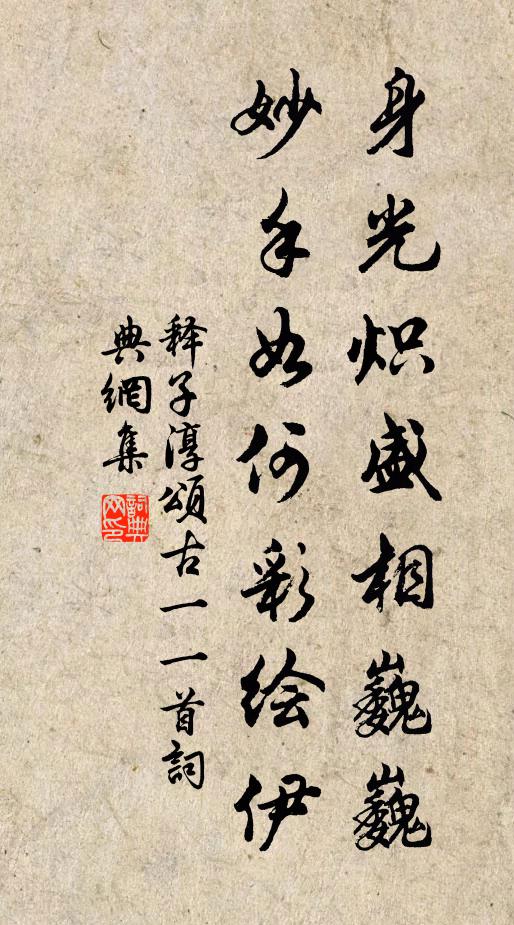 身光炽盛相巍巍
妙手如何彩绘伊
释子淳頌古一一首詞
典網集
詞典网印